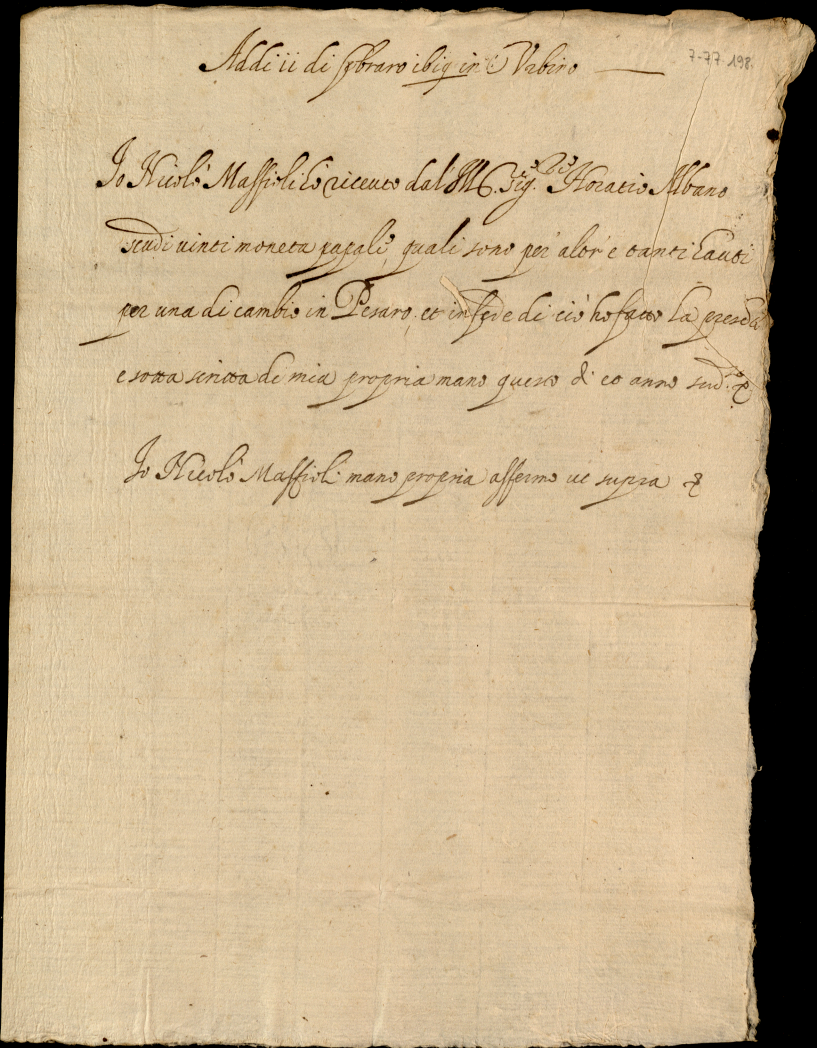 Addi ii di febraro 1619 in Urbino
7-77-198.
Io Nicolò Maffioli hò riceuto dal M. Sig.re Horatio Albano
scudi uinti moneta papale, quali sono per altr'e tanti hauti
per una di cambio in Pesaro, et in fede di ciò ho fatto la presẽte
e sotta scritta di mia propria mano questo dì et anno sud.o
Io Nicolò Maffioli mano propria affermo ut supra